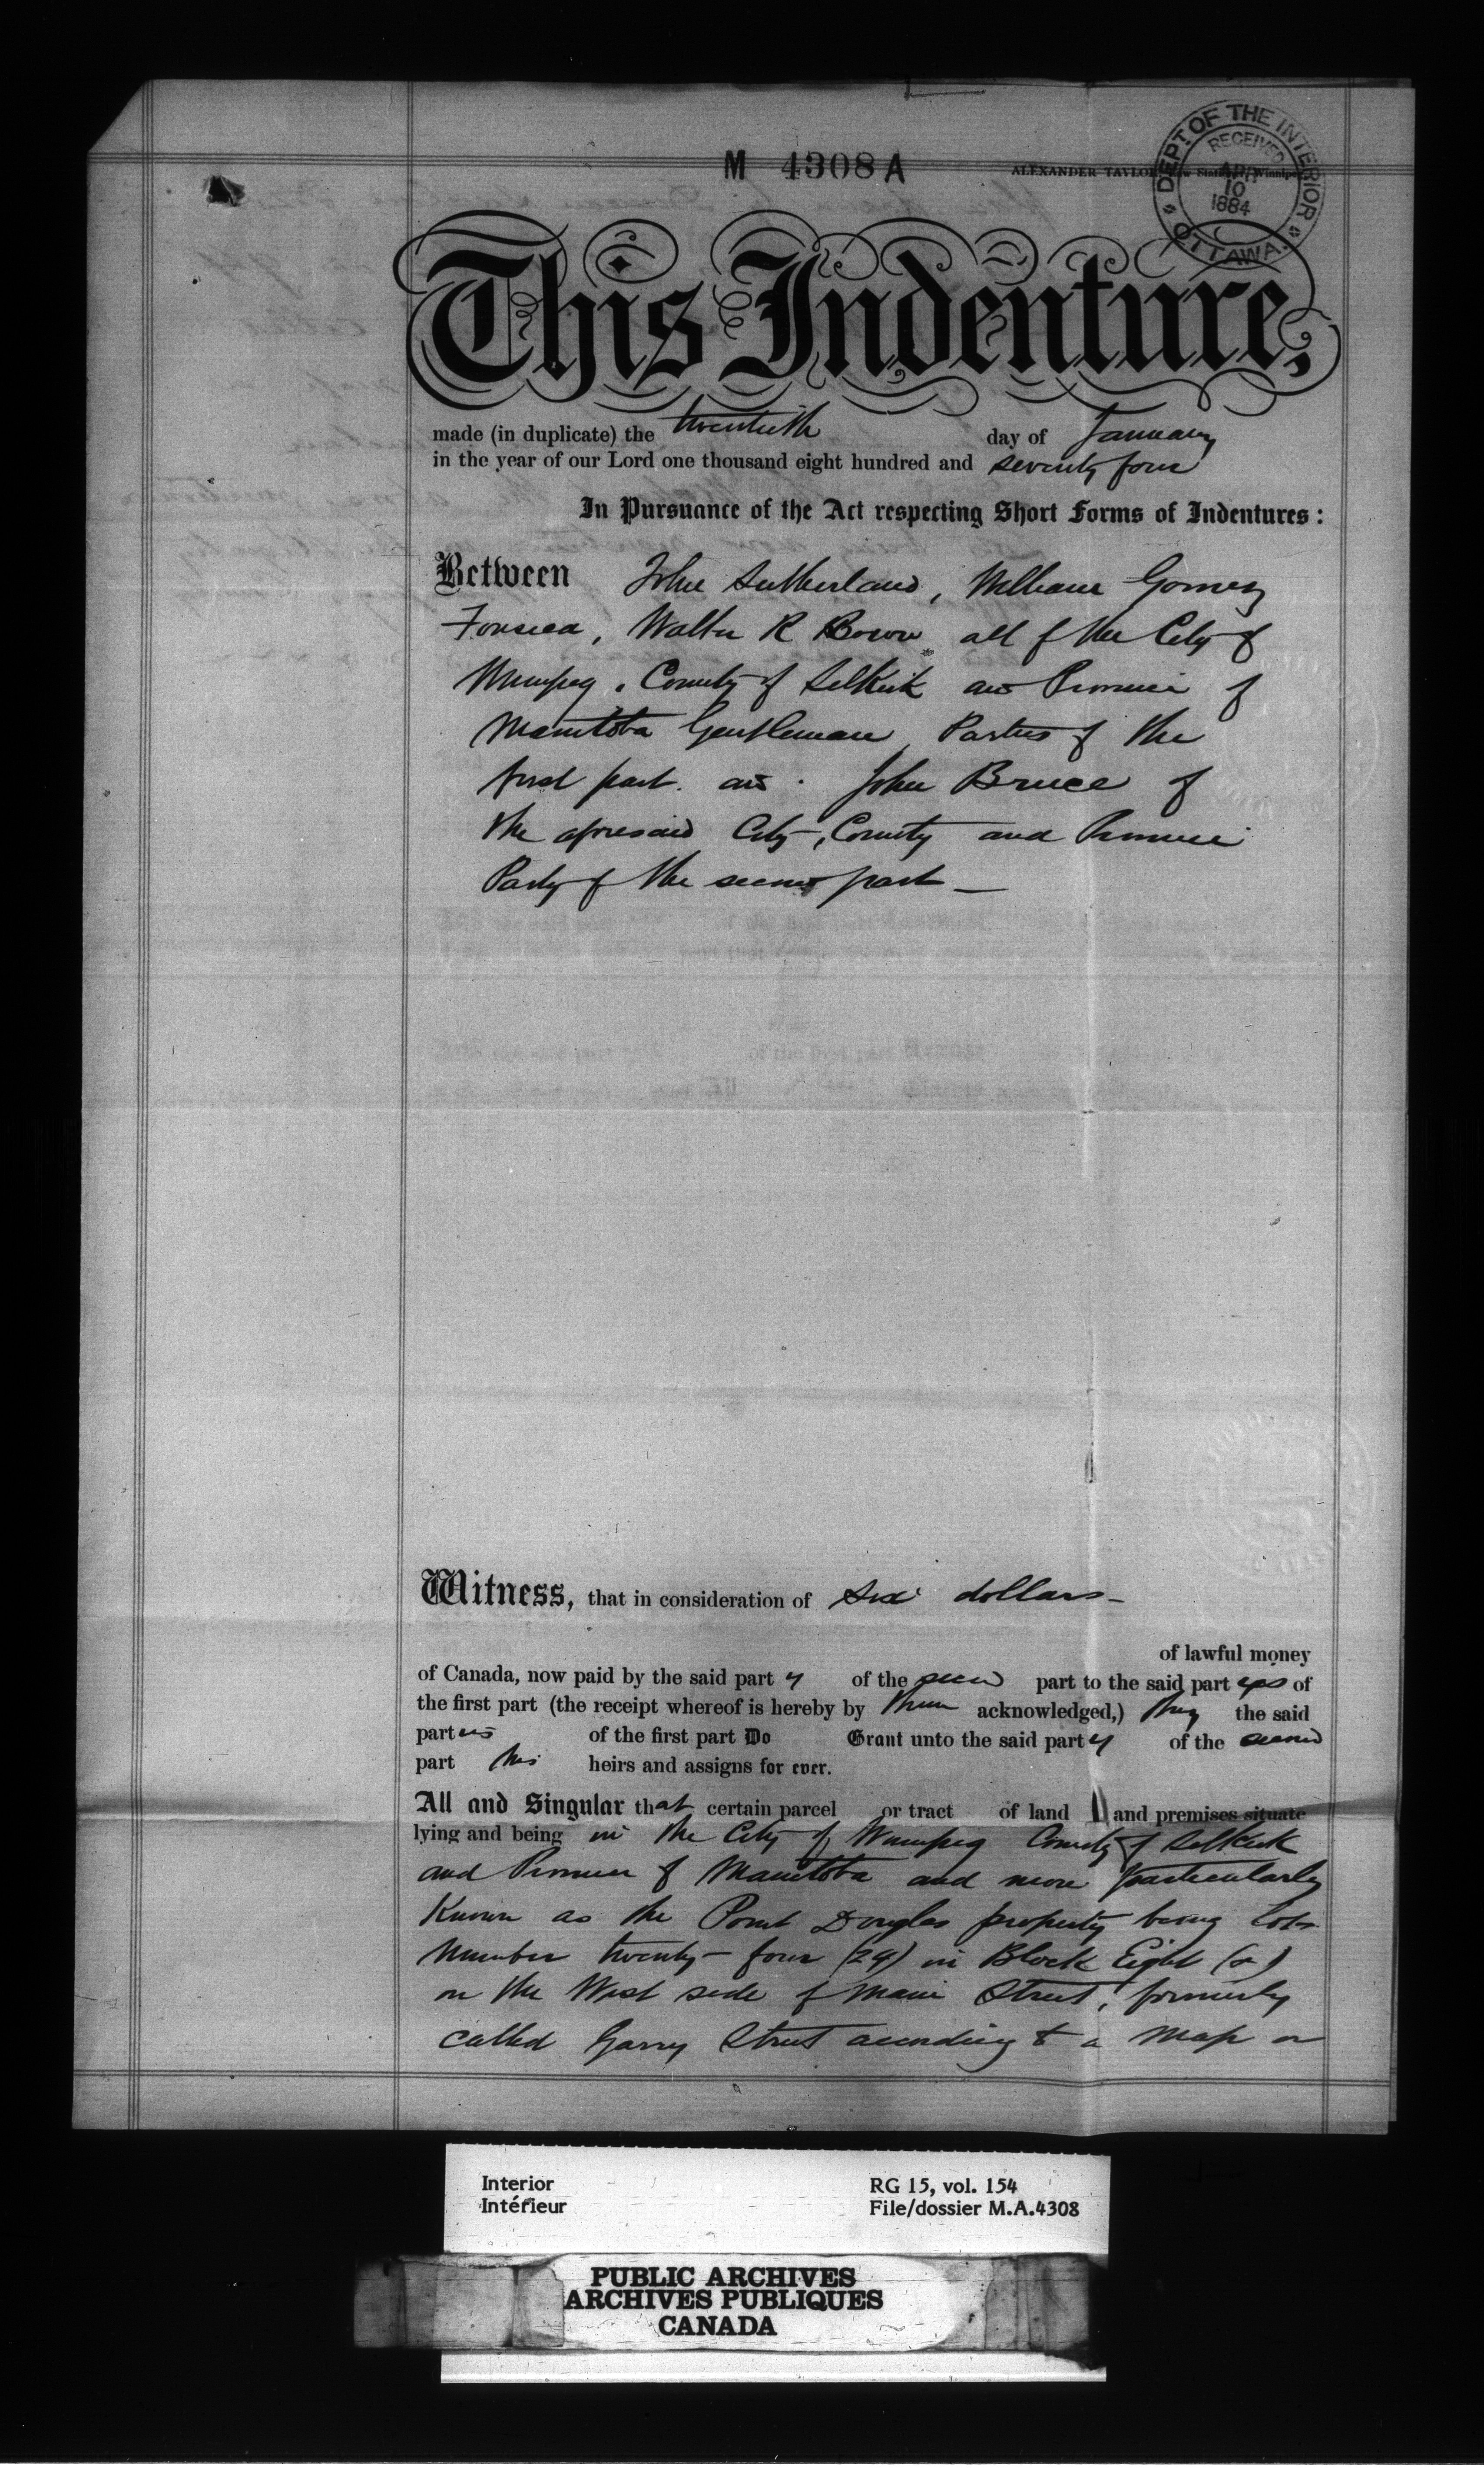 M 4308 A
ALEXANDER TAYLOR, Law Stationer, Winnipeg
DEPT. OF THE INTERIOR
RECEIVED
APR
10
1884
OTTAWA
This Indenture,
made (in duplicate) the twentieth day of January
in the year of our Lord one thousand eight hundred and seventy four
In Pursuance of the Act respecting Short Forms of Indentures:
Between John Sutherland, William Gomez
Fonseca, Walter R Bown all of the City of
Winnipeg, County of Selkirk and Province of
Manitoba Gentlemen Parties of the
first part. and John Bruce of
the aforesaid City, County and Province
Party of the second part —
Witness, that in consideration of Six dollars —
of lawful money
of Canada, now paid by the said party of the second part to the said parties of
the first part (the receipt whereof is hereby by them acknowledged,) they the said
parties of the first part Do Grant unto the said party of the second
part his heirs and assigns for ever.
All and Singular that certain parcel or tract of land and premises situate
lying and being in the City of Winnipeg County of Selkirk
and Province of Manitoba and more particularly
Known as the Point Douglas property being Lots
Number twenty-four (24) in Block Eight (8)
on the West side of Main Street, formerly
called Garry Street according to a Map or
Interior
Intérieur
RG 15, vol. 154
File/dossier M.A.4308
PUBLIC ARCHIVES
ARCHIVES PUBLIQUES
CANADA